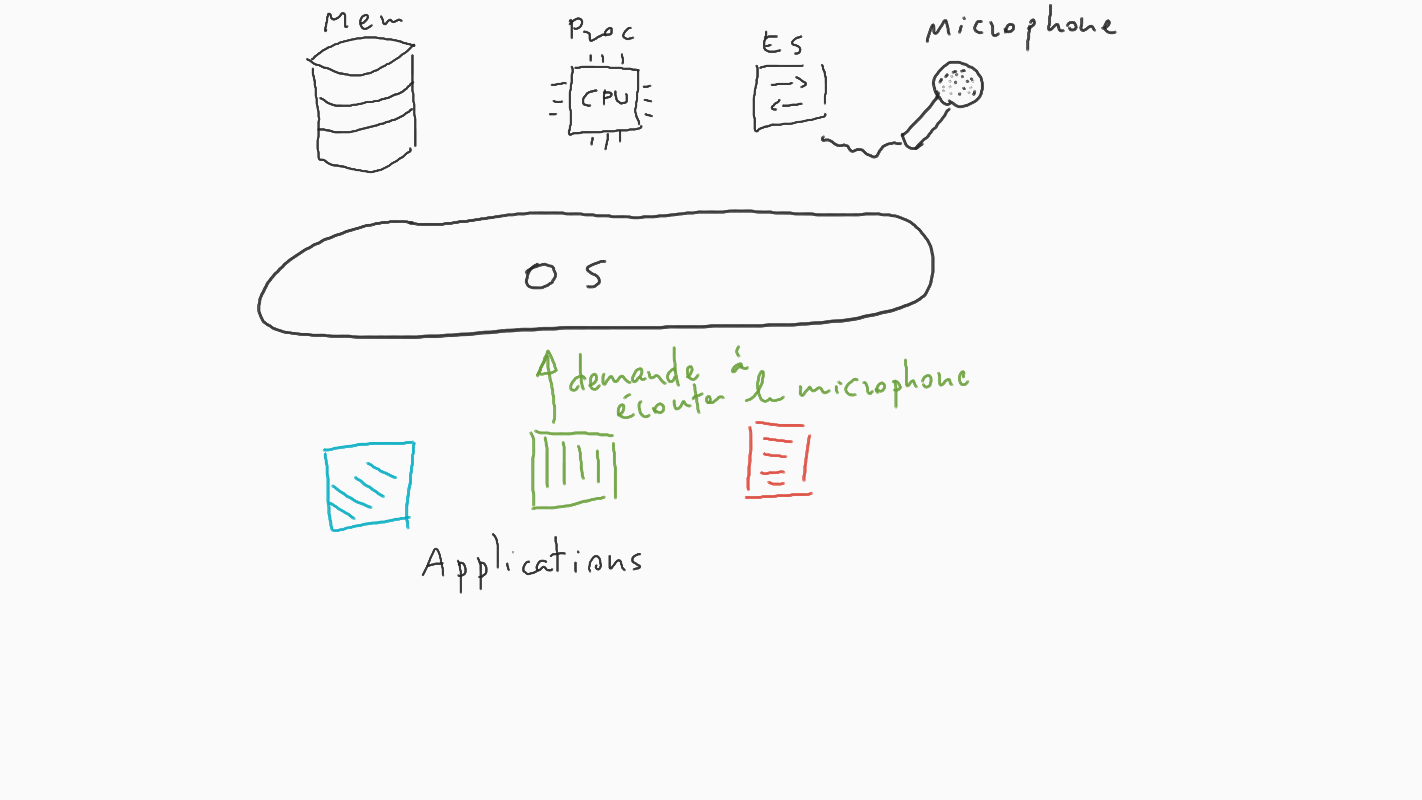 Mem
Proc
ES
Microphone
CPU
OS
demande à
écouter le microphone
Applications